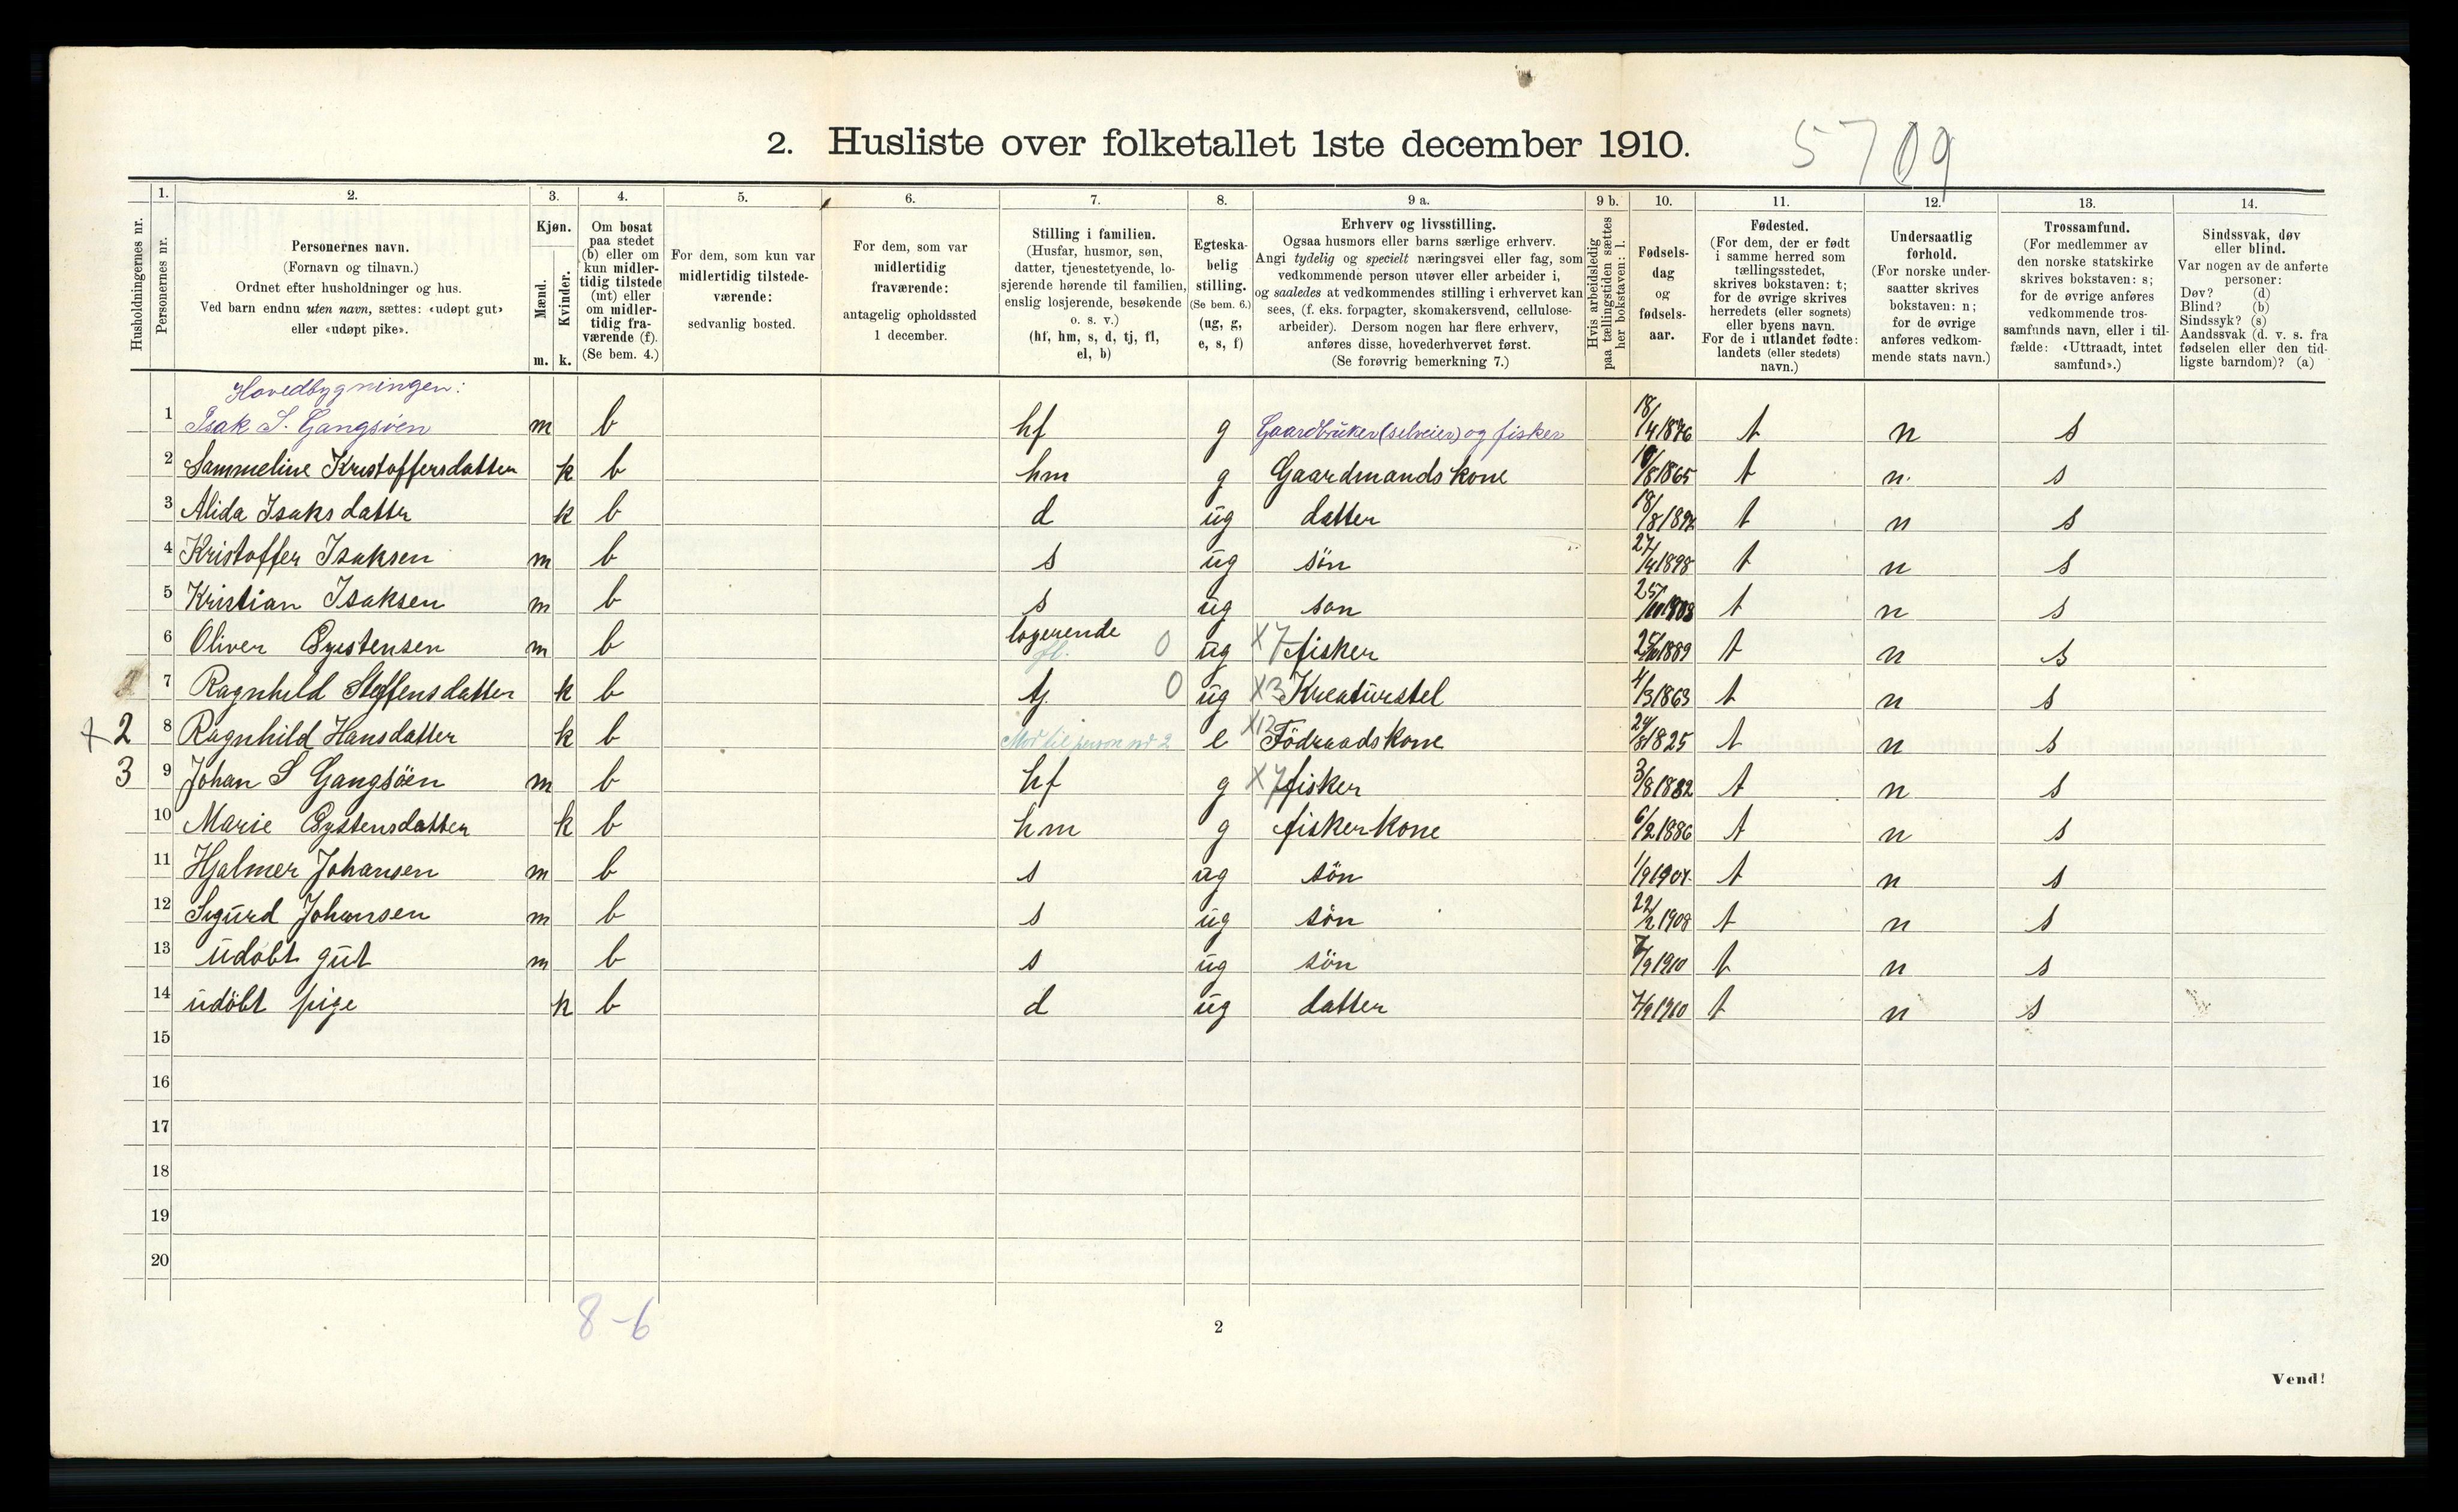 2. Husliste over folketallet 1ste december 1910.
5709
Husholdningernes nr.
1.
Personernes nr.
2.
Personernes navn.
(Fornavn og tilnavn.)
Ordnet efter husholdninger og hus.
Ved barn endnu uten navn, sættes: «udøpt gut»
eller «udøpt pike».
3.
Kjøn.
Mænd.
Kvinder.
m. k.
4.
Om bosat
paa stedet
(b) eller om
kun midler-
tidig tilstede
(mt) eller
om midler-
tidig fra-
værende (f).
(Se bem. 4.)
5.
For dem, som kun var
midlertidig tilstede-
værende:
sedvanlig bosted.
6.
For dem, som var
midlertidig
fraværende:
antagelig opholdssted
1 december.
7.
Stilling i familien.
(Husfar, husmor, søn,
datter, tjenestetyende, lo-
sjerende hørende til familien,
enslig losjerende, besøkende
o. s. v.)
(hf, hm, s, d, tj, fl,
el, b)
8.
Egteska-
belig
stilling.
(Se bem. 6.)
(ug, g,
e, s, f)
9 a.
Erhverv og livsstilling.
Ogsaa husmors eller barns særlige erhverv.
Angi tydelig og specielt næringsvei eller fag, som
vedkommende person utøver eller arbeider i,
og saaledes at vedkommendes stilling i erhvervet kan
sees, (f. eks. forpagter, skomakersvend, cellulose-
arbeider). Dersom nogen har flere erhverv,
anføres disse, hovederhvervet først.
(Se forøvrig bemerkning 7.)
9 b.
Hvis arbeidsledig
paa tællingstiden sættes
her bokstaven: l.
10.
Fødsels-
dag
og
fødsels-
aar.
11.
Fødested.
(For dem, der er født
i samme herred som
tællingsstedet,
skrives bokstaven: t;
for de øvrige skrives
herredets (eller sognets)
eller byens navn.
For de i utlandet fødte:
landets (eller stedets)
navn.)
12.
Undersaatlig
forhold.
(For norske under-
saatter skrives
bokstaven: n;
for de øvrige
anføres vedkom-
mende stats navn.)
13.
Trossamfund.
(For medlemmer av
den norske statskirke
skrives bokstaven: s;
for de øvrige anføres
vedkommende tros-
samfunds navn, eller i til-
fælde: «Uttraadt, intet
samfund».)
14.
Sindssvak, døv
eller blind.
Var nogen av de anførte
personer:
Døv? (d)
Blind? (b)
Sindssyk? (s)
Aandssvak (d. v. s. fra
fødselen eller den tid-
ligste barndom)? (a)
Hovedbygningen:
1 Isak S. Gangsöen m b hf g Gaardbruker (selveier) og fisker t n s
2 Sammeline Kristoffersdatter k b hm g Gaardmandskone /8 1865 t n. s
3 Alida Isaksdatter k b d ug datter t n s
4 Kristoffer Isaksen m b s ug sön 27/4 1898 t n s
5 Kristian Isaksen m b s ug son t n s
6 Oliver Oystensen m b logerende fl. 0 ug X7 fisker 1889 t n s
7 Ragnhild Steffensdatter k b tj. 0 ug X3 Kreaturstel 4/3 1863 t n s
X 2 8 Ragnhild Hansdatter k b Mor til person nr 2 e X12 Födraadskone 24/8 1825 t n s
3 9 Johan S Gangsöen m b hf g X7 fisker 3/8 1882 t n s
10 Marie Oystensdatter k b hm g fiskerkone 6/2 1886 t n s
11 Hjalmer Johansen m b s ug sön 1/9 1907. t n s
12 Sigurd Johansen m b s ug sön 22/2 1908 t n s
13 udöbt gut m b s ug sön 7/9 1910 t n s
14 udöbt pige k b d ug datter 7/9 1910 t n s
15
16
17
18
19
20
8-6
2
Vend!